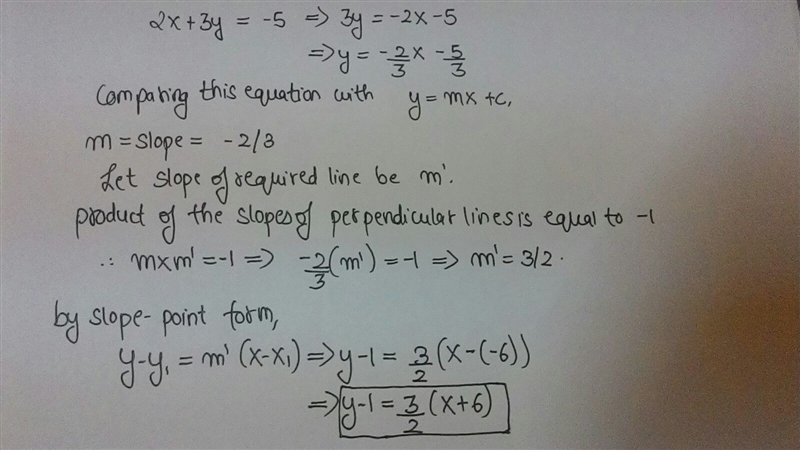 2x+3y = -5 ⇒ 3y = -2x-5
⇒ y = -2/3 x - 5/3
Comparing this equation with y=mx+c,
m = slope = -2/3
Let slope of required line be m'.
product of the slopes of perpendicular lines is equal to -1
∴ m×m' = -1 ⇒ -2/3 (m') = -1 ⇒ m' = 3/2.
by slope-point form,
y-y₁ = m' (x-x₁) ⇒ y-1 = 3/2 (x-(-6))
⇒ y-1 = 3/2 (x+6)